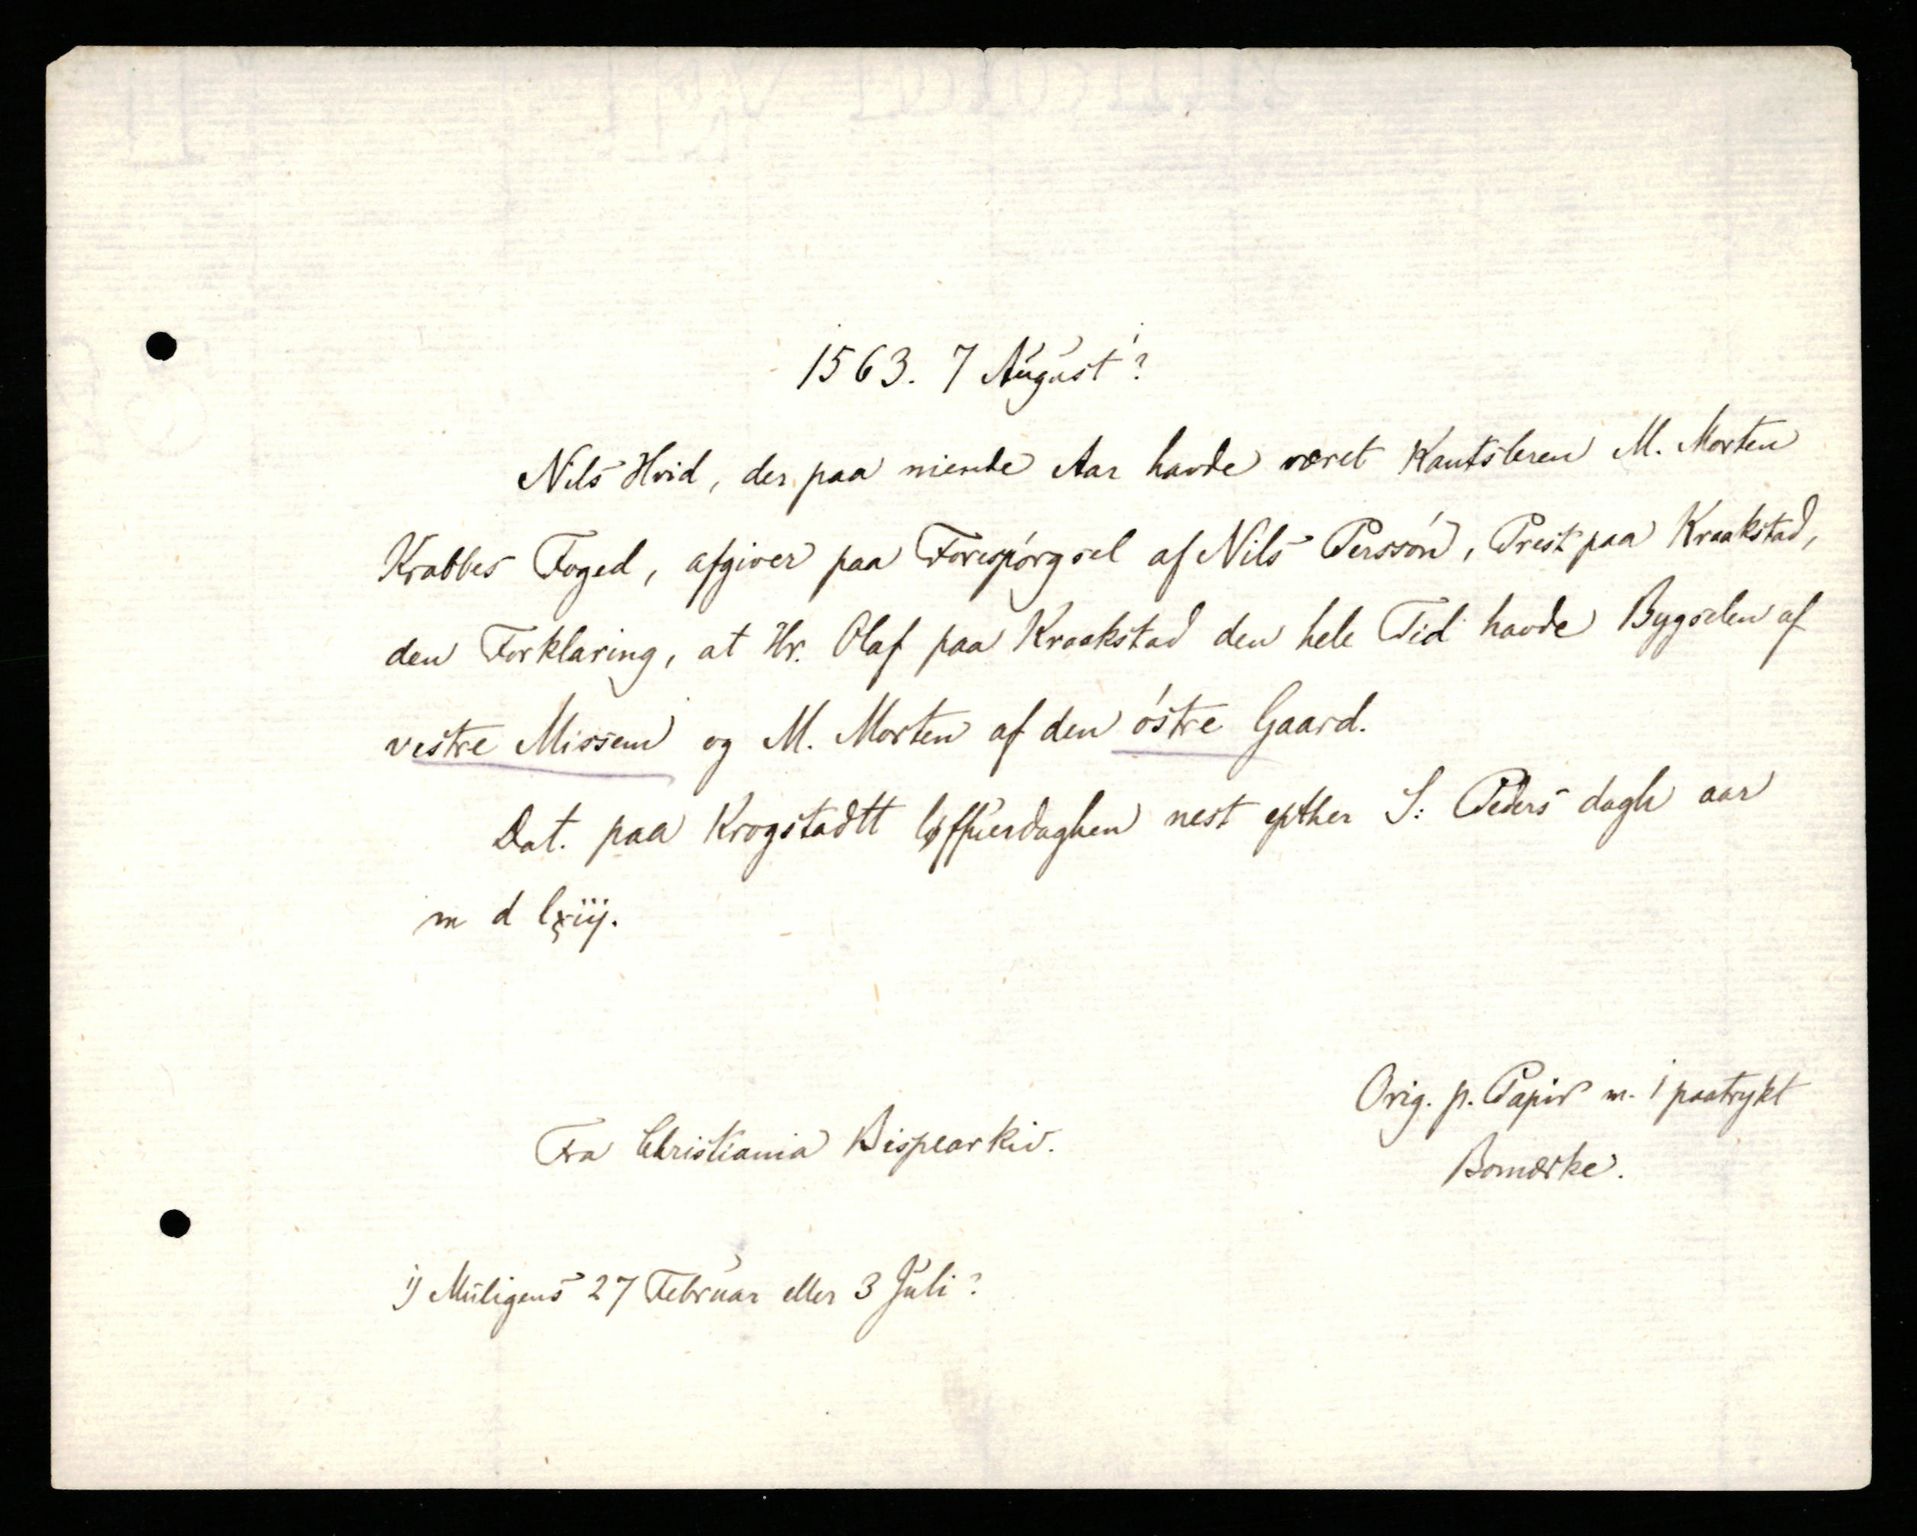 1563. 7 August¹?
Nils Hvid, der paa niende Aar havde været Kantsleren M. Morten
Krabbes Foged, afgiver paa Forespórgsel af Nils Perssón, Prest paa Kraakstad,
den Forklaring, at Hr. Olaf paa Kraakstad den hele Tid havde Bygselen af
vestre Missem og M. Morten af den óstre Gaard.
Dat. paa Krogstadtt løffuerdaghen nest epther S: Peders dagh aar
m d lxiij.
Orig. p. Papir m. 1 paatrykt
Bomærke.
Fra Christiania Bispearkiv.
1) Muligens 27 Februar eller 3 Juli?